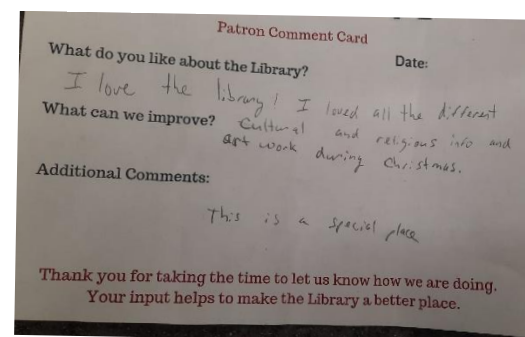 Patron Comment Card
What do you like about the Library?
Date:
I love the library! I loved all the different
What can we improve?
Cultural and religious info and
art work during Christmas.
Additional Comments:
This is a special place
Thank you for taking the time to let us know how we are doing.
Your input helps to make the Library a better place.